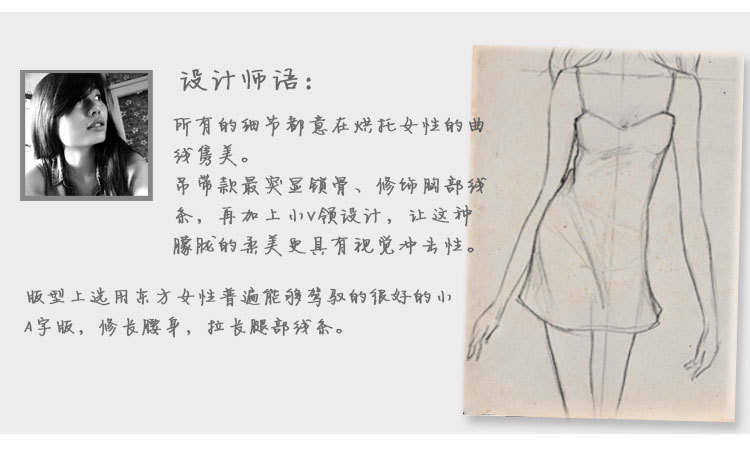 设计师语：
所有的细节都意在烘托女性的曲
线隽美。
吊带款最突显锁骨、修饰胸部线
条，再加上小V领设计，让这种
朦胧的柔美更具有视觉冲击性。
版型上选用东方女性普遍能够驾驭的很好的小
A字版，修长腰身，拉长腿部线条。